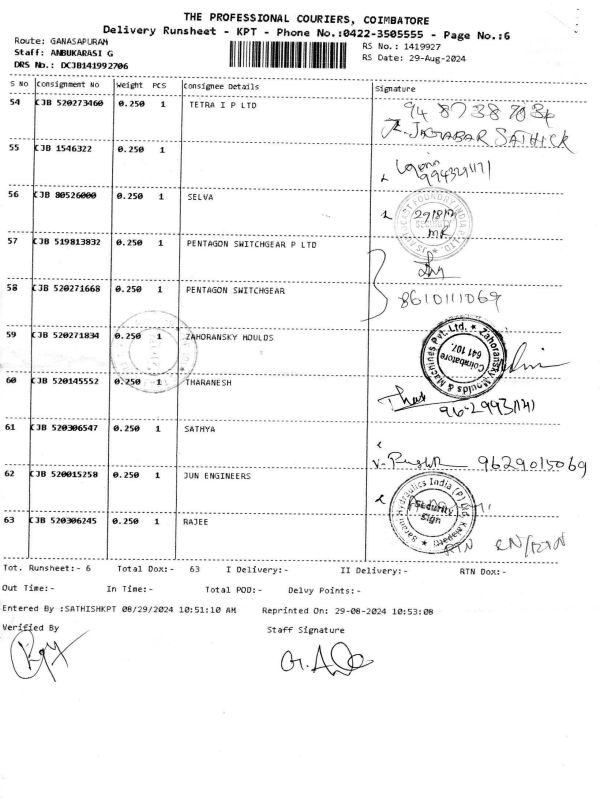 THE PROFESSIONAL COURIERS, COIMBATORE
Delivery Runsheet - KPT - Phone No.:0422-3505555 - Page No.:6
Route: GANASAPURAM
RS No. : 1419927
Staff: ANBUKARASI G
RS Date: 29-Aug-2024
DRS No.: DCJB141992706
S No Consignment No Weight PCS Consignee Details Signature
54 CJB 520273460 0.250 1 TETRA I P LTD
JAGTABAR SATHICK
55 CJB 1546322 0.250 1
56 CJB 80526000 0.250 1 SELVA
57 CJB 519813832 0.250 1 PENTAGON SWITCHGEAR P LTD
58 CJB 520271668 0.250 1 PENTAGON SWITCHGEAR
8610111069
59 CJB 520271834 0.250 1 ZAHORANSKY MOULDS
Zahoransky Moulds & Machines Pvt. Ltd.
Coimbatore
641 107.
60 CJB 520145552 0.250 1 THARANESH
61 CJB 520306547 0.250 1 SATHYA
9629015069
62 CJB 520015258 0.250 1 JUN ENGINEERS
Security
Sign
63 CJB 520306245 0.250 1 RAJEE
RTN
Tot. Runsheet:- 6 Total Dox:- 63 I Delivery:- II Delivery:- RTN Dox:-
Out Time:- In Time:- Total POD:- Delvy Points:-
Entered By :SATHISHKPT 08/29/2024 10:51:10 AM Reprinted On: 29-08-2024 10:53:08
Verified By Staff Signature